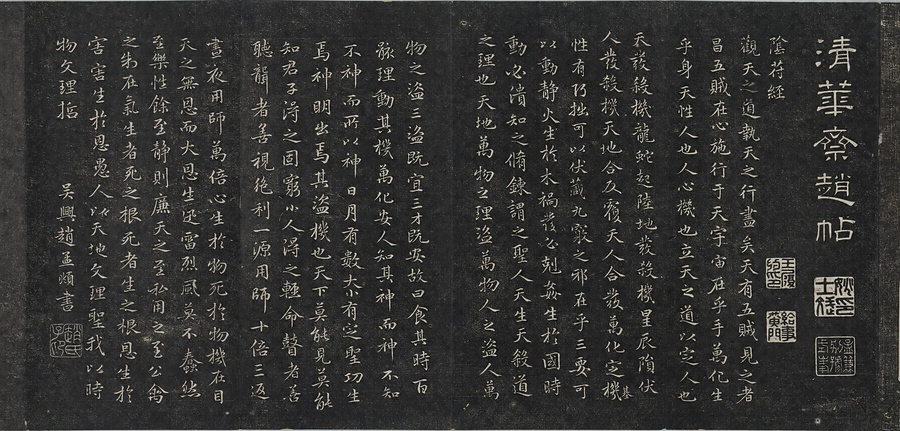 清華齋趙帖
陰符經
觀天之道執天之行盡矣天有五賊見之者
昌五賊在心施行于天宇宙在乎手萬化生
乎身天性人也人心機也立天之道以定人也
天發殺機龍蛇起陸地發殺機星辰隕伏
人發殺機天地合反覆天人合發萬化定機
基
性有巧拙可以伏藏九竅之邪在乎三要可
以動靜火生於木禍發必剋姦生於國時
動必潰知之脩鍊謂之聖人天生天殺道
之理也天地萬物之理盜萬物人之盜人萬
物之盜三盜既宜三才既安故曰食其時百
骸理動其機萬化安人知其神而神不知
不神而所以神日月有數大小有定聖功生
焉神明出焉其盜機也天下莫能見莫能
知君子淂之固窮小人淂之輕命瞽者善
聽聾者善視絶利一源用師十倍三返
晝夜用師萬倍心生於物死於物機在目
天之無恩而大恩生迅雷烈風莫不蠢然
至樂性餘至靜則廉天之至私用之至公禽
之制在氣生者死之根死者生之根恩生於
害害生於恩愚人以天地文理聖我以時
物文理哲
吳興趙孟頫書
趙氏子昂